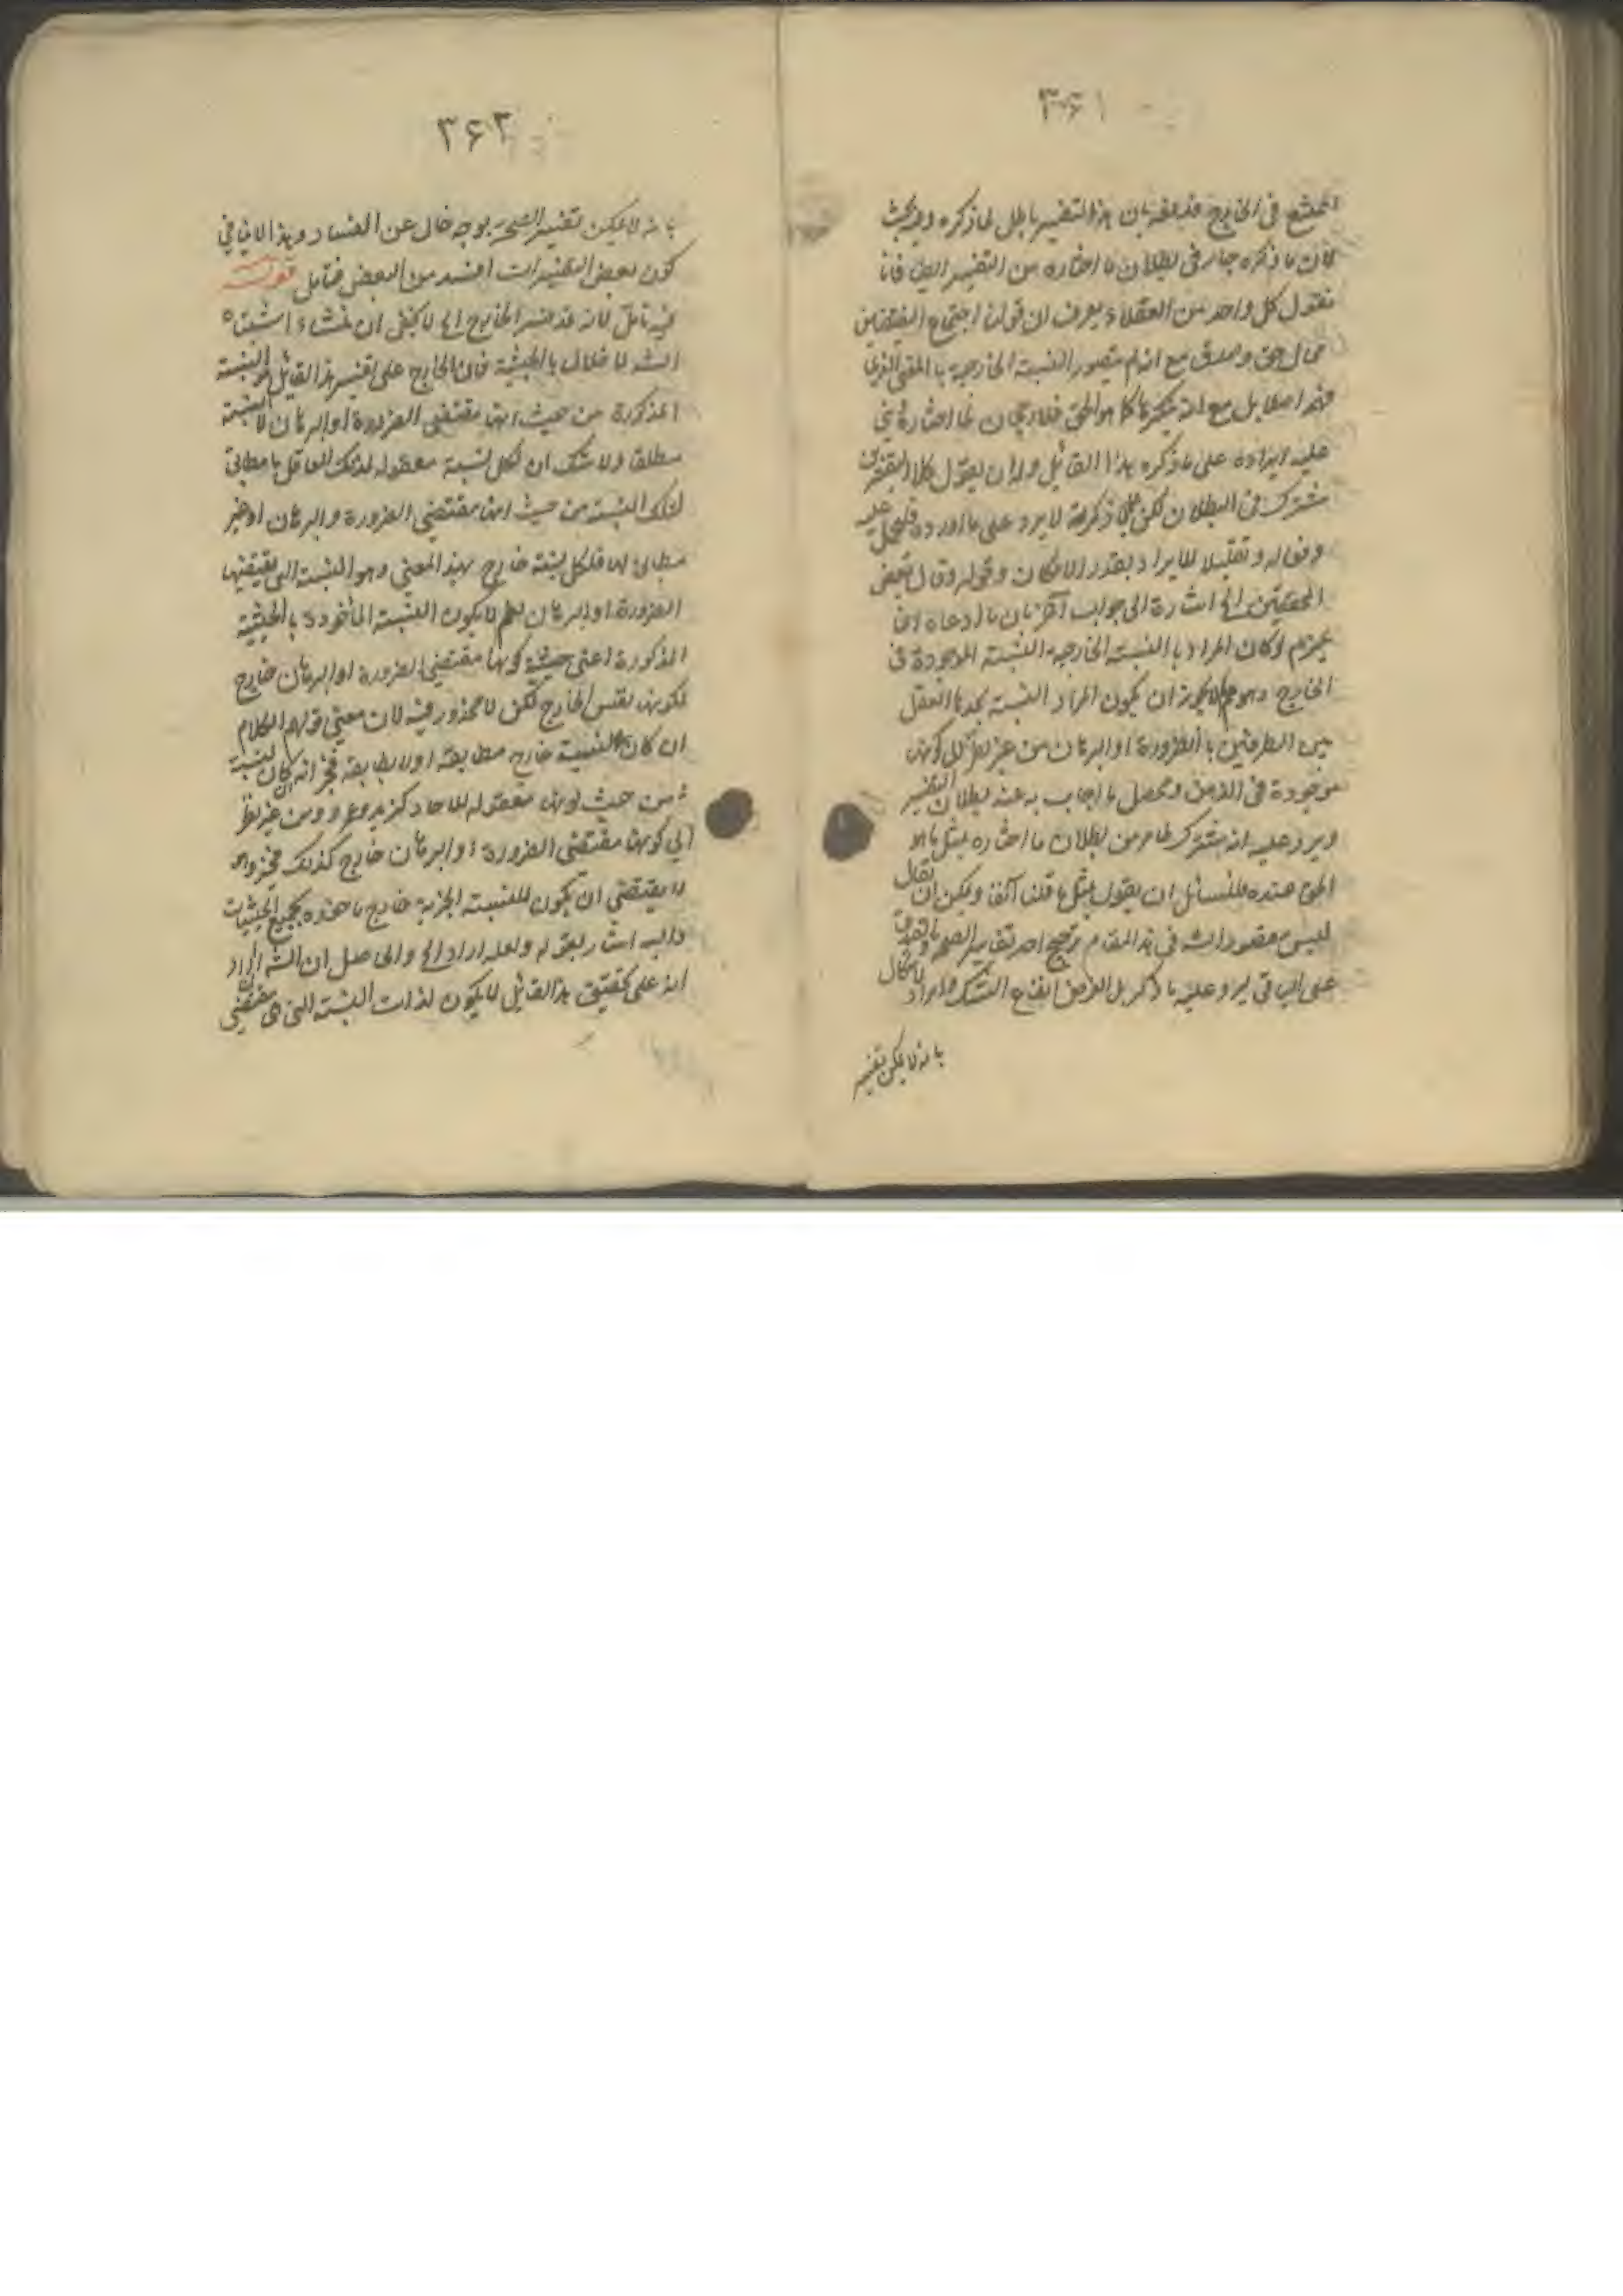 ٣۶١
الممتنع في الخارج فندفعه بان هذا التفسير باطل لما ذكره وفيه بحث
لان ما ذكره جار في بطلان ما اختاره من التفسير ايضا فانا
نقول كل واحد من العقلاء يعرف ان قولنا اجتماع النقيضين
محال حق وصدق مع انه لم يتصور النسبة الخارجية بالمعنى الذي
مع انه ينكرها كما هو الحق فلا رجحان لما اختاره
عليه ايراده على ما ذكره هذا القائل وله ان يقول كلا التفسيرين
مشترك في البطلان لكن ما ذكرته لا يرد على ما اورده
وتقليلا للايراد بقدر الامكان وقوله وقال بعض
المحققين الخ اشارة الى جواب آخر بان ما ادعاه انما
يلزم لو كان المراد بالنسبة الخارجية النسبة الموجودة في
الخارج وهو مم لا يجوز ان يكون المراد النسبة يجدها العقل
بين الطرفين بالضرورة او البرهان من غير نظر الى كونها
موجودة في الذهن ومحصل ما اجاب به عنه بطلان التفسير
ويرد عليه انه مشترك لما مر من بطلان ما اختاره بمثل ما هو
الحق عنده فللسائل ان يقول بمثل ما قلنا آنفا ويمكن ان يقال
ليس مقصود الشه في هذا المقام ترجيح احد تفاسير الصحة والصدق
على الباقي ليرد عليه ما ذكر بل الغرض
بانه لا يمكن تفسير
٣۶٢
بانه لا يمكن تفسير الصحة بوجه خال عن الفساد وهذا لا ينافي
كون بعض التفسيرات افسد من البعض فتأمل قوله
فيه تأمل لانه قد فسر الخارج الخ لا يخفى ان منشاء اشتباه
الشه الاخلال بالحيثية فان الخارج على تفسير هذا القائل هو النسبة
المذكورة من حيث انها مقتضى الضرورة او البرهان لا النسبة
مطلقا ولا شك ان لكل نسبة معقولة لذلك العاقل ما مطابق
لتلك النسبة من حيث انها مقتضى الضرورة والبرهان او غير
مطابق لها فلكل نسبة خارج بهذا المعنى وهو النسبة التي يقتضيها
الضرورة او البرهان نعم لا يكون النسبة المأخوذة بالحيثية
المذكورة اعني حيثية كونها مقتضى الضرورة او البرهان خارج
لكونها نفس الخارج لكن لا محذور فيه لان معنى قولهم الكلام
ان كان لنسبته خارج مطابقه او لا يطابقه فخبر انه ان كان لنسبة
من حيث كونها معقولة ومن غير نظر
الى كونها مقتضى الضرورة او البرهان خارج كذلك فخبر وهو
لا يقتضي ان يكون للنسبة الخبرية خارج ماخوذه بجميع الحيثيات
واليه اشار بقوله ولعله اراد الخ والحاصل ان الشه اراد
انه على تحقيق هذا القائل لا يكون لذات النسبة التي هي مقتضى